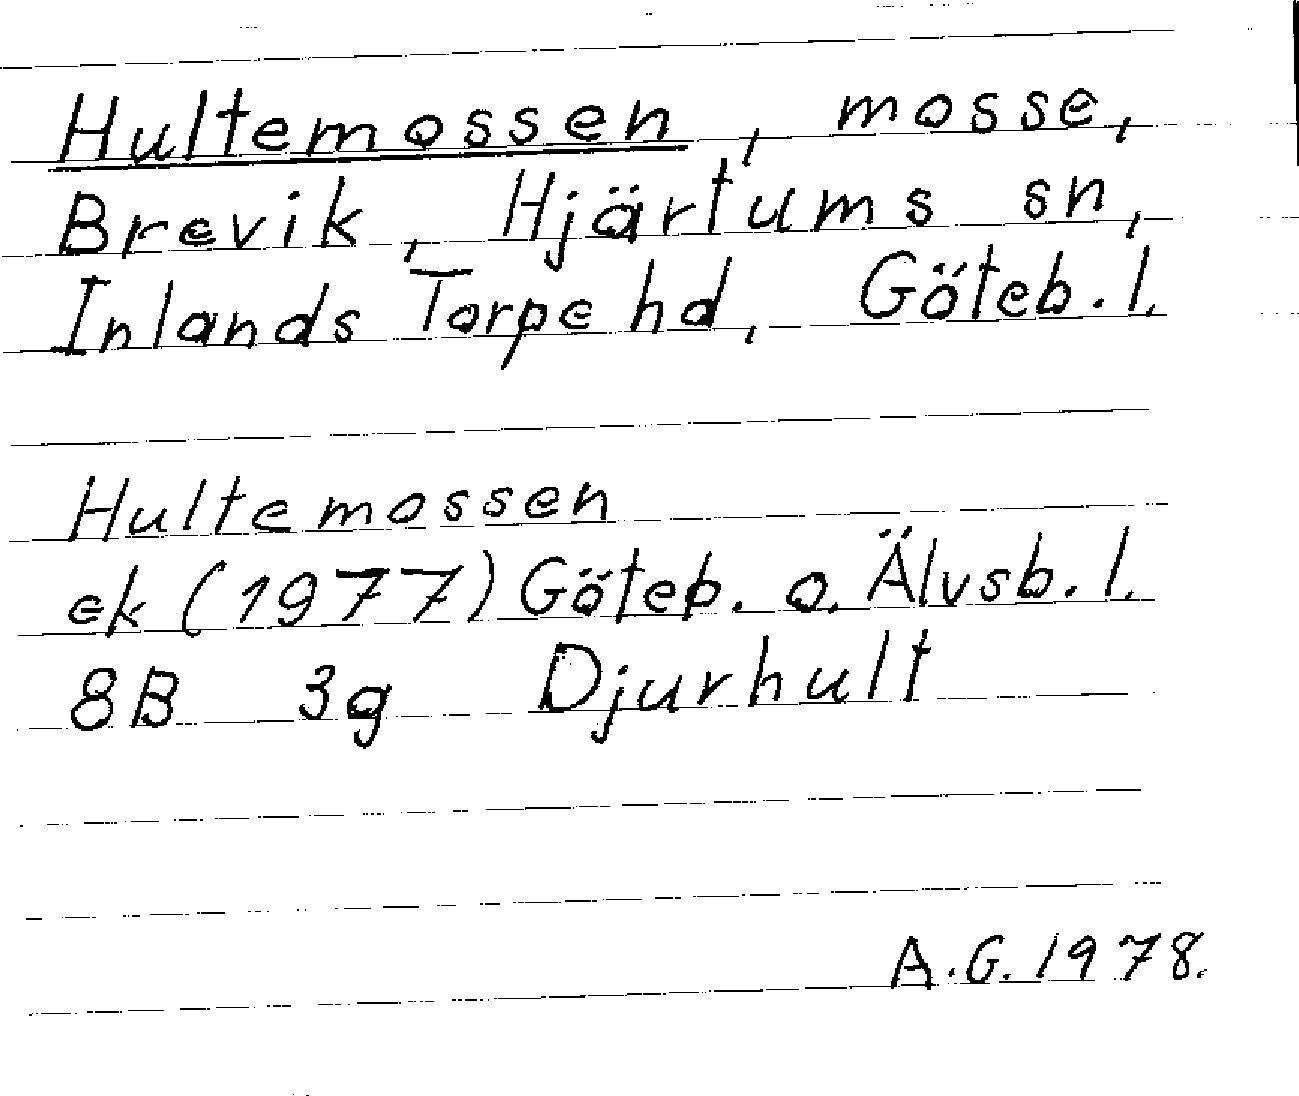 Hultemossen, mosse,
Brevik, Hjärtums sn,
Inlands Torpe hd, Göteb. l.
Hultemossen
ek (1977) Göteb. o. Älvsb. l.
8B 3g Djurhult
A.G. 1978.